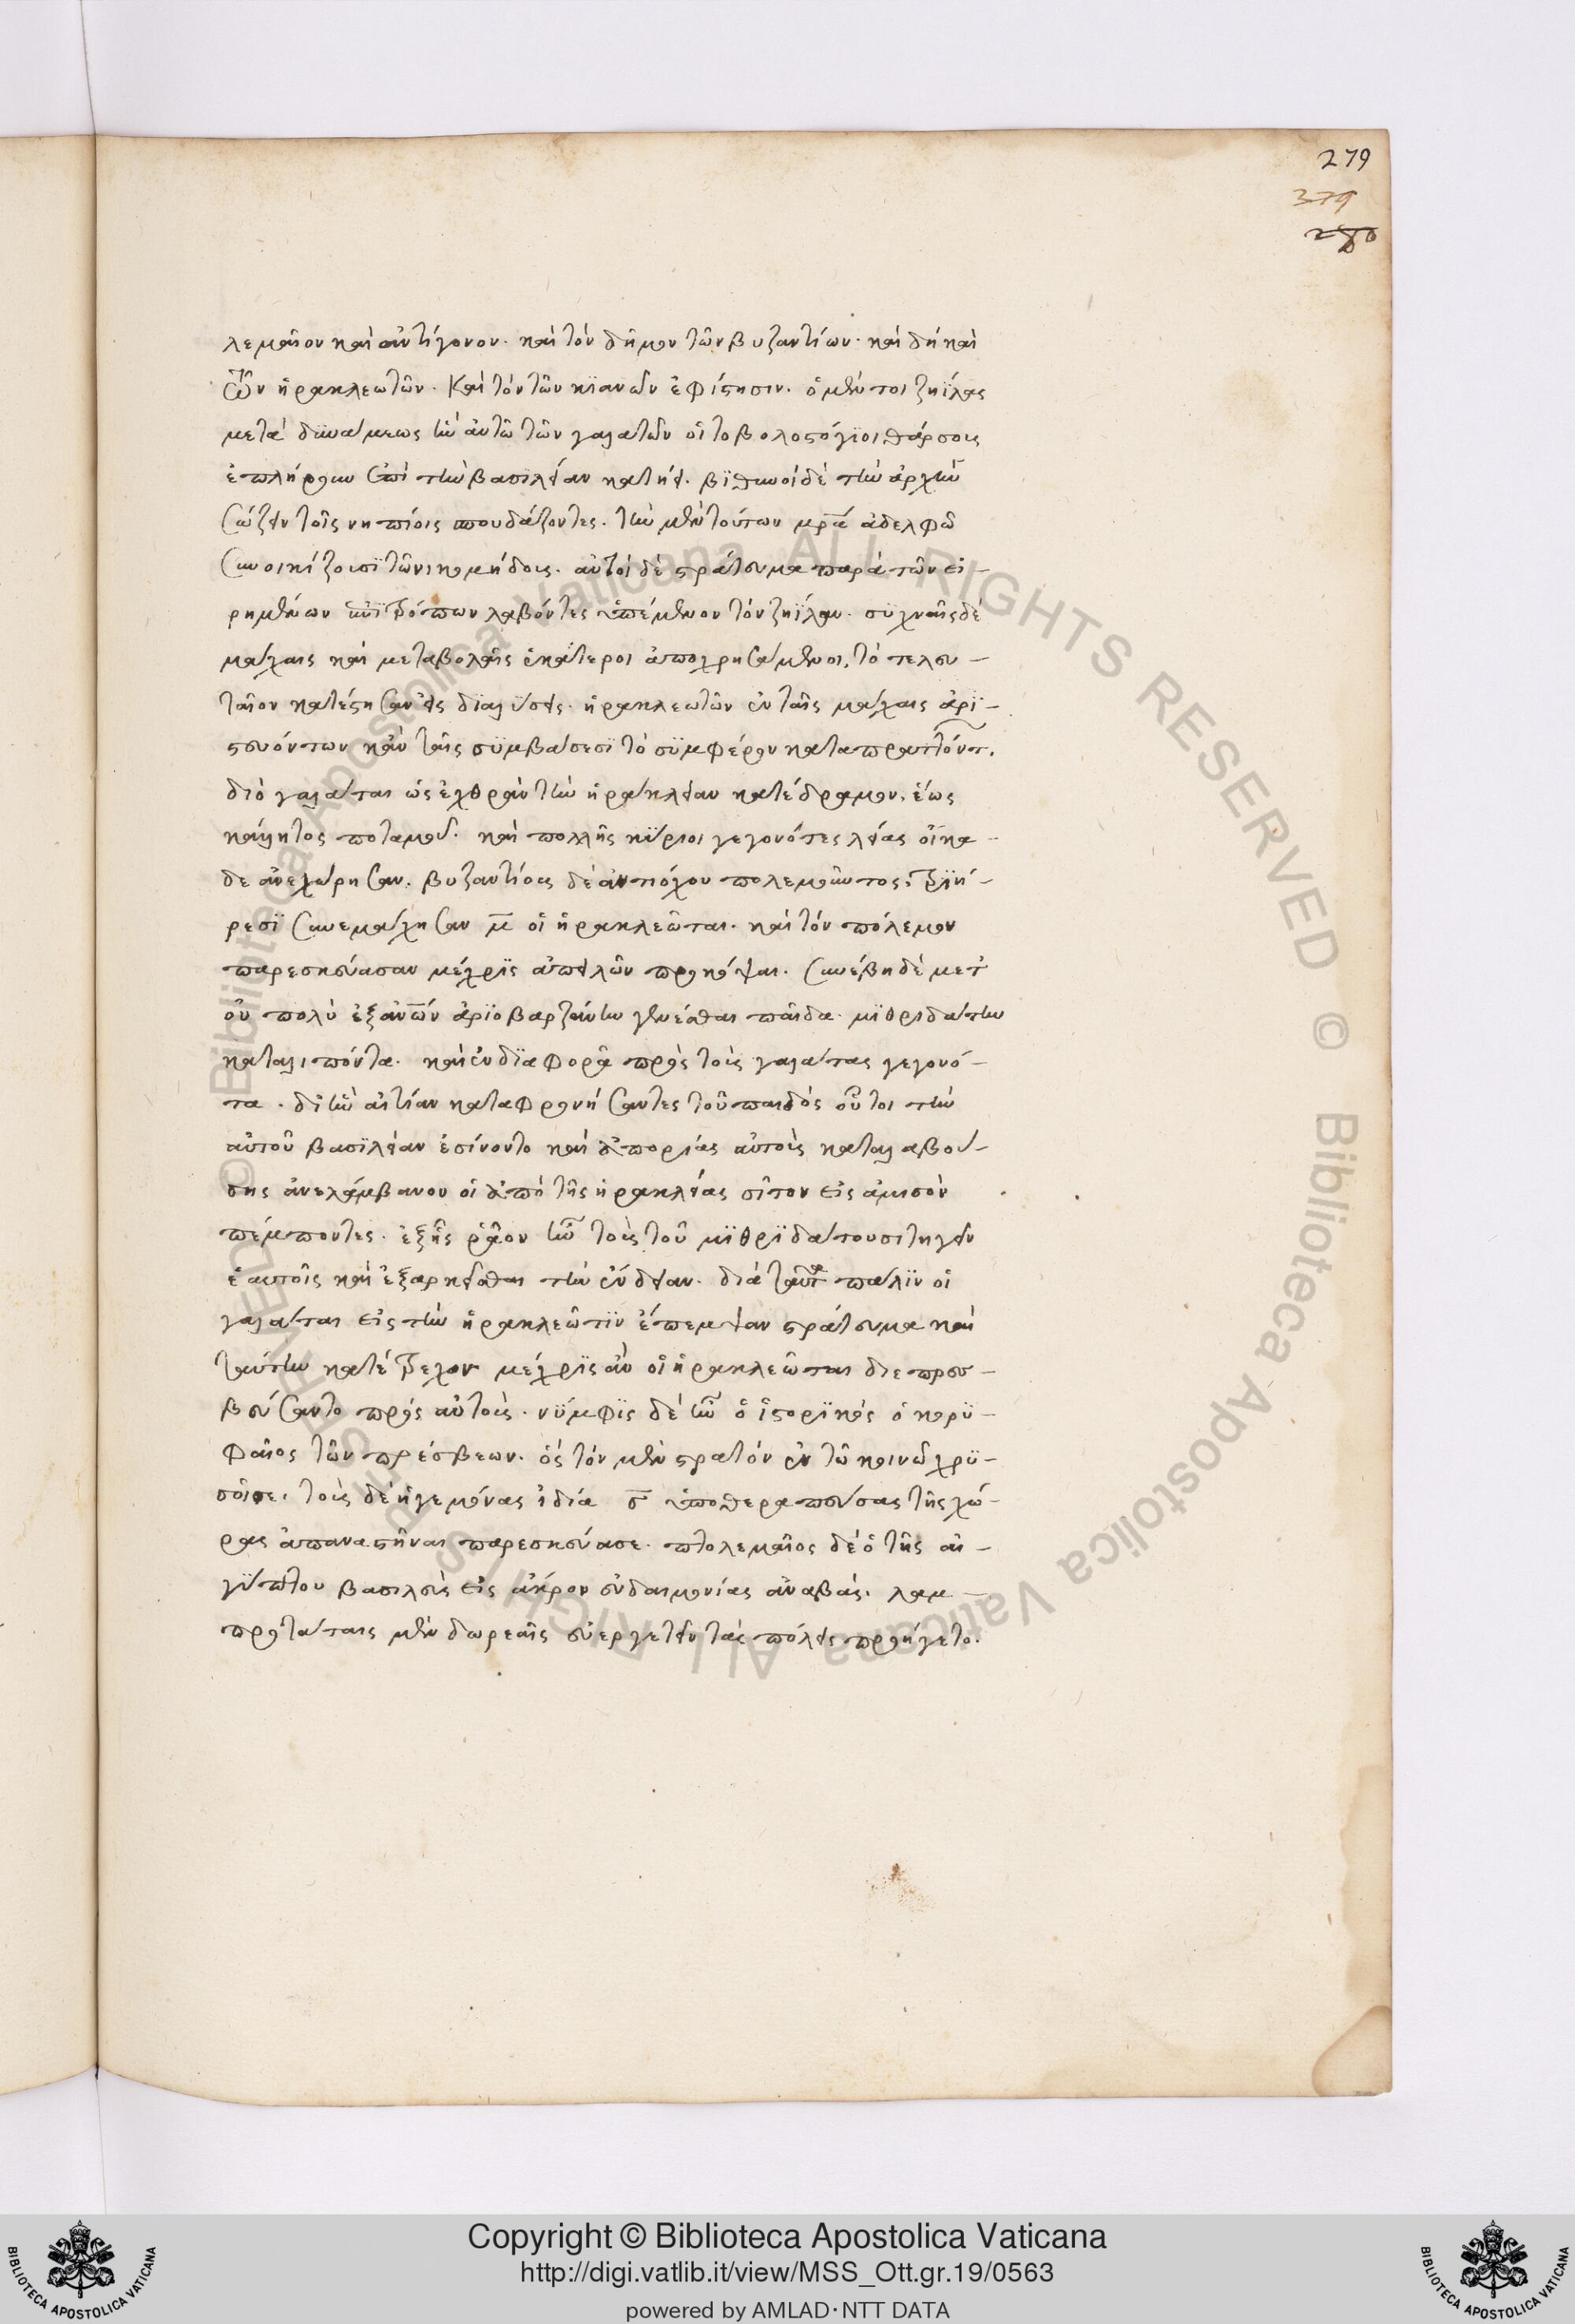 279
379
280
λεμαῖον καὶ ἀντίγονον. καὶ τὸν δῆμον τῶν βυζαντίων. καὶ δὴ καὶ
τῶν ἡρακλεωτῶν. καὶ τὸν τῶν κϊανῶν ἐφίστησιν. ὁ μέν τοι ζηΐλας
μετὰ δϋνάμεως ἣν αὐτῶ τῶν γαλατῶν οἱ τοβολοστόγϊοι θάρσους
ἐπλήρουν ἐπὶ τὴν βασιλείαν κατήει. βϊθυνοὶ δὲ τὴν ἀρχὴν
σώζειν τοῖς νηπίοις σπουδάζοντες. τὴν μὲν τούτων μρ̅ά ἀδελφῶ
συνοικίζουσϊ τῶ νικομήδους. αὐτοὶ δὲ στράτευμα παρὰ τῶν εἰ-
ρημένων λαβόντες ὑπέμενον τὸν ζηΐλαν. σϋχναῖς δὲ
μάχαις καὶ μεταβολαῖς ἑκάτεροι ἀποχρησάμενοι, τὸ τελευ-
ταῖον κατέστησαν εἰς δϊαλύσεις. ἡρακλεωτῶν ἐν ταῖς μάχαις ἀρϊ-
στευόντων κἀν ταῖς σϋμβάσεσϊ τὸ σϋμφέρον καταπραττόντ.
διὸ γαλάται ὡς ἐχθρὰν τὴν ἡράκλειαν κατέδραμον. ἕως
κάλητος ποταμοῦ. καὶ πολλῆς κύριοι γεγονότες λείας οἴκα-
δε ἀνεχώρησαν. βυζαντίοις δὲ ἀντιόχου πολεμοῦντος, τριή-
ρεσϊ συνεμάχησαν μ̅ οἱ ἡρακλεῶται. καὶ τὸν πόλεμον
παρεσκεύασαν μέχρϊς ἀπειλῶν προκόψαι. συνέβη δὲ μετ
οὐ πολὺ ἐξ ἀν̅ῶν ἀρϊοβαρζάνην γενέσθαι παῖδα μϊθριδάτην
καταλιπόντα. καὶ ἐν δϊαφορᾶ πρὸς τοὺς γαλάτας γεγονό-
τα. δι ἣν αἰτίαν καταφρονήσαντες τοῦ παιδὸς οὗτοι τὴν
αὐτοῦ βασϊλείαν ἐσίνοντο καὶ ἀπορίας αὐτοὺς καταλαβού-
σης ἀνελάμβανον οἱ ἀπὸ τῆς ἡρακλείας σῖτον εἰς ἀμισὸν
πέμποντες. ἐξῆς ῥᾶον ἦν τοὺς τοῦ μϊθρϊδάτου σιτηγεῖν
ἑαυτοῖς καὶ ἐξαρκεῖσθαι τὴν ἔνδειαν. διὰ ταῦτα πάλϊν οἱ
γαλάται εἰς τὴν ἡρακλεῶτϊν ἔπεμψαν στράτευμα καὶ
ταύτην κατέτρεχον μέχρϊς ἂν οἱ ἡρακλεῶται διεπρεσ-
βεύσαντο πρὸς αὐτοὺς. νύμφϊς δὲ ἦν ὁ ἱστορϊκὸς ὁ κορϋ-
φαῖος τῶν πρέσβεων. ὃς τὸν μὲν στρατὸν ἐν τῶ κοινῶ χρϋ-
σοῖς ε. τοὺς δὲ ἡγεμόνας ἰδία σ̅ ὑποθεραπεύσας τῆς χώ-
ρας ἀπαναστῆναι παρεσκεύασε. πτολεμαῖος δὲ ὁ τῆς αἰ-
γύπτου βασιλεὺς εἰς ἄκρον εὐδαιμονίας ἀναβὰς. λαμ-
προτάταις μὲν δωρεαῖς εὐεργετεῖν τὰς πόλεις προήγετο.
Copyright © Biblioteca Apostolica Vaticana
http://digi.vatlib.it/view/MSS_Ott.gr.19/0563
powered by AMLAD·NTT DATA